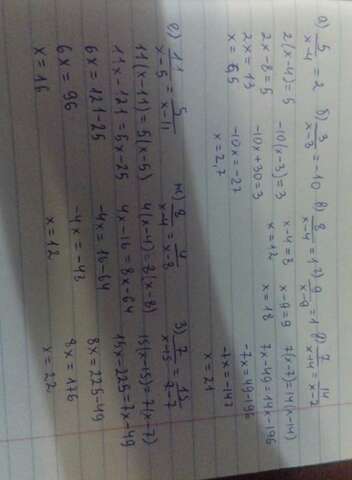 а) 5/(x-4) = 2  б) 3/(x-3) = -10  в) 8/(x-4) = 1  г) 9/(x-9) = 1  д) 7/(x-14) = 14/(x-7)
2(x-4)=5  -10(x-3)=3  x-4=8  x-9=9  7(x-7)=14(x-14)
2x-8=5  -10x+30=3  x=12  x=18  7x-49=14x-196
2x=13  -10x=-27  -7x=49-196
x=6,5  x=2,7  -7x=-147
x=21
е) 11/(x-5) = 5/(x-11)  ж) 8/(x-4) = 4/(x-8)  з) 7/(x-15) = 15/(x-7)
11(x-11)=5(x-5)  4(x-4)=8(x-8)  15(x-15)=7(x-7)
11x-121=5x-25  4x-16=8x-64  15x-225=7x-49
6x=121-25  -4x=16-64  8x=225-49
6x=96  -4x=-48  8x=176
x=16  x=12  x=22